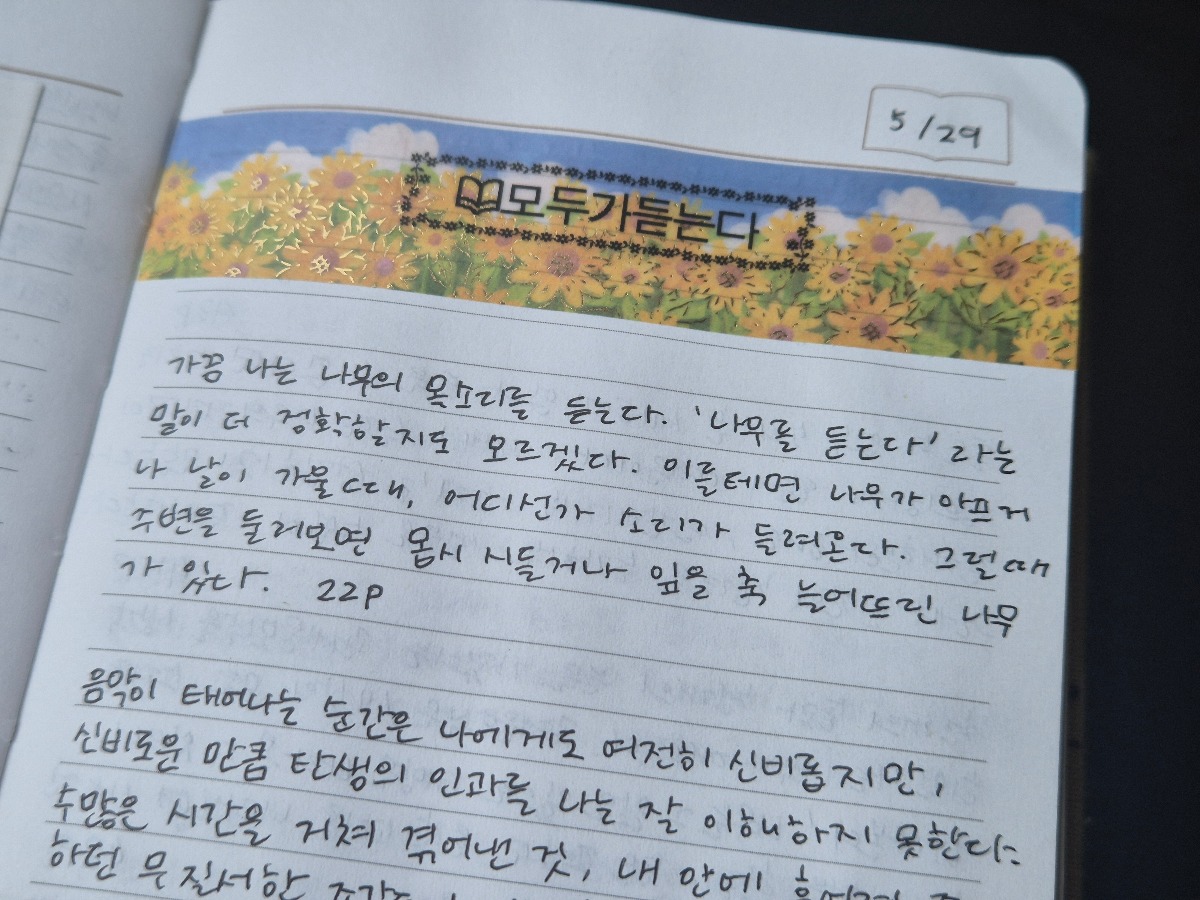 5/29
모두가듣는다
가끔 나는 나무의 목소리를 듣는다. '나무를 듣는다' 라는
말이 더 정확할지도 모르겠다. 이를테면 나무가 아프거
나 날이 가물 때, 어디선가 소리가 들려온다. 그럴 때
주변을 둘러보면 몹시 시들거나 잎을 축 늘어뜨린 나무
가 있다. 22p
음악이 태어나는 순간은 나에게도 여전히 신비롭지만,
신비로운 만큼 탄생의 인과를 나는 잘 이해하지 못한다.
수많은 시간을 거쳐 겪어낸 것, 내 안에
하던 무질서한